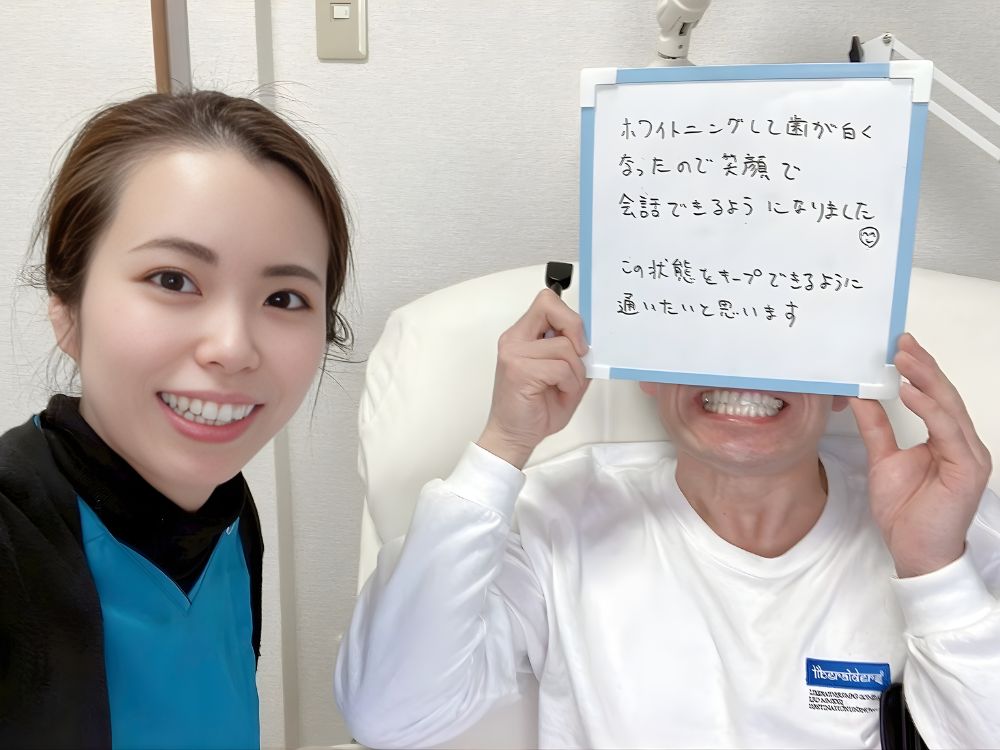 ホワイトニングして歯が白く
なったので笑顔で
会話できるようになりました
この状態をキープできるように
通いたいと思います
liberaiders